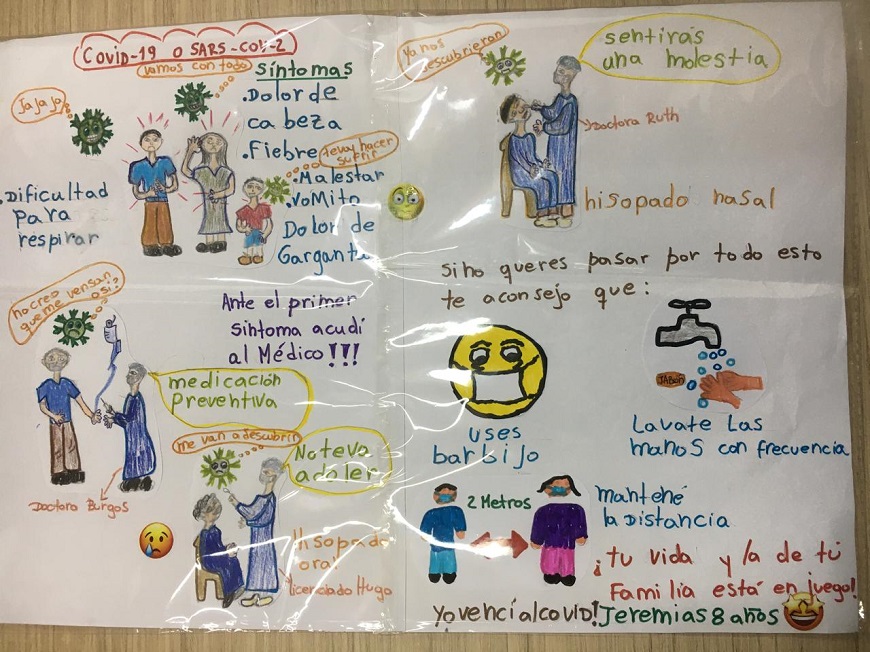 Covid-19 o SARS-CoV-2
vamos con todo
Jajaja
Síntomas
.Dolor de
cabeza
.Fiebre
te voy hacer
sufrir
.Malestar
.Vomito
Dolor de
Garganta
.Dificultad
para
respirar
no creo
que me vensan
asi?
Ante el primer
síntoma acudí
al Médico!!!
medicación
preventiva
Doctora Burgos
me van a descubrir
No te va
a doler
Hisopado
oral
licenciado Hugo
Ya nos
descubrieron
sentirás
una molestia
Doctora Ruth
hisopado nasal
si no queres pasar por todo esto
te aconsejo que:
uses
barbijo
JABON
Lavate Las
manos con frecuencia
2 Metros
mantené
la Distancia
¡tu vida y la de tú
Familia está en juego!
Yo vencí al covid! Jeremias 8 años